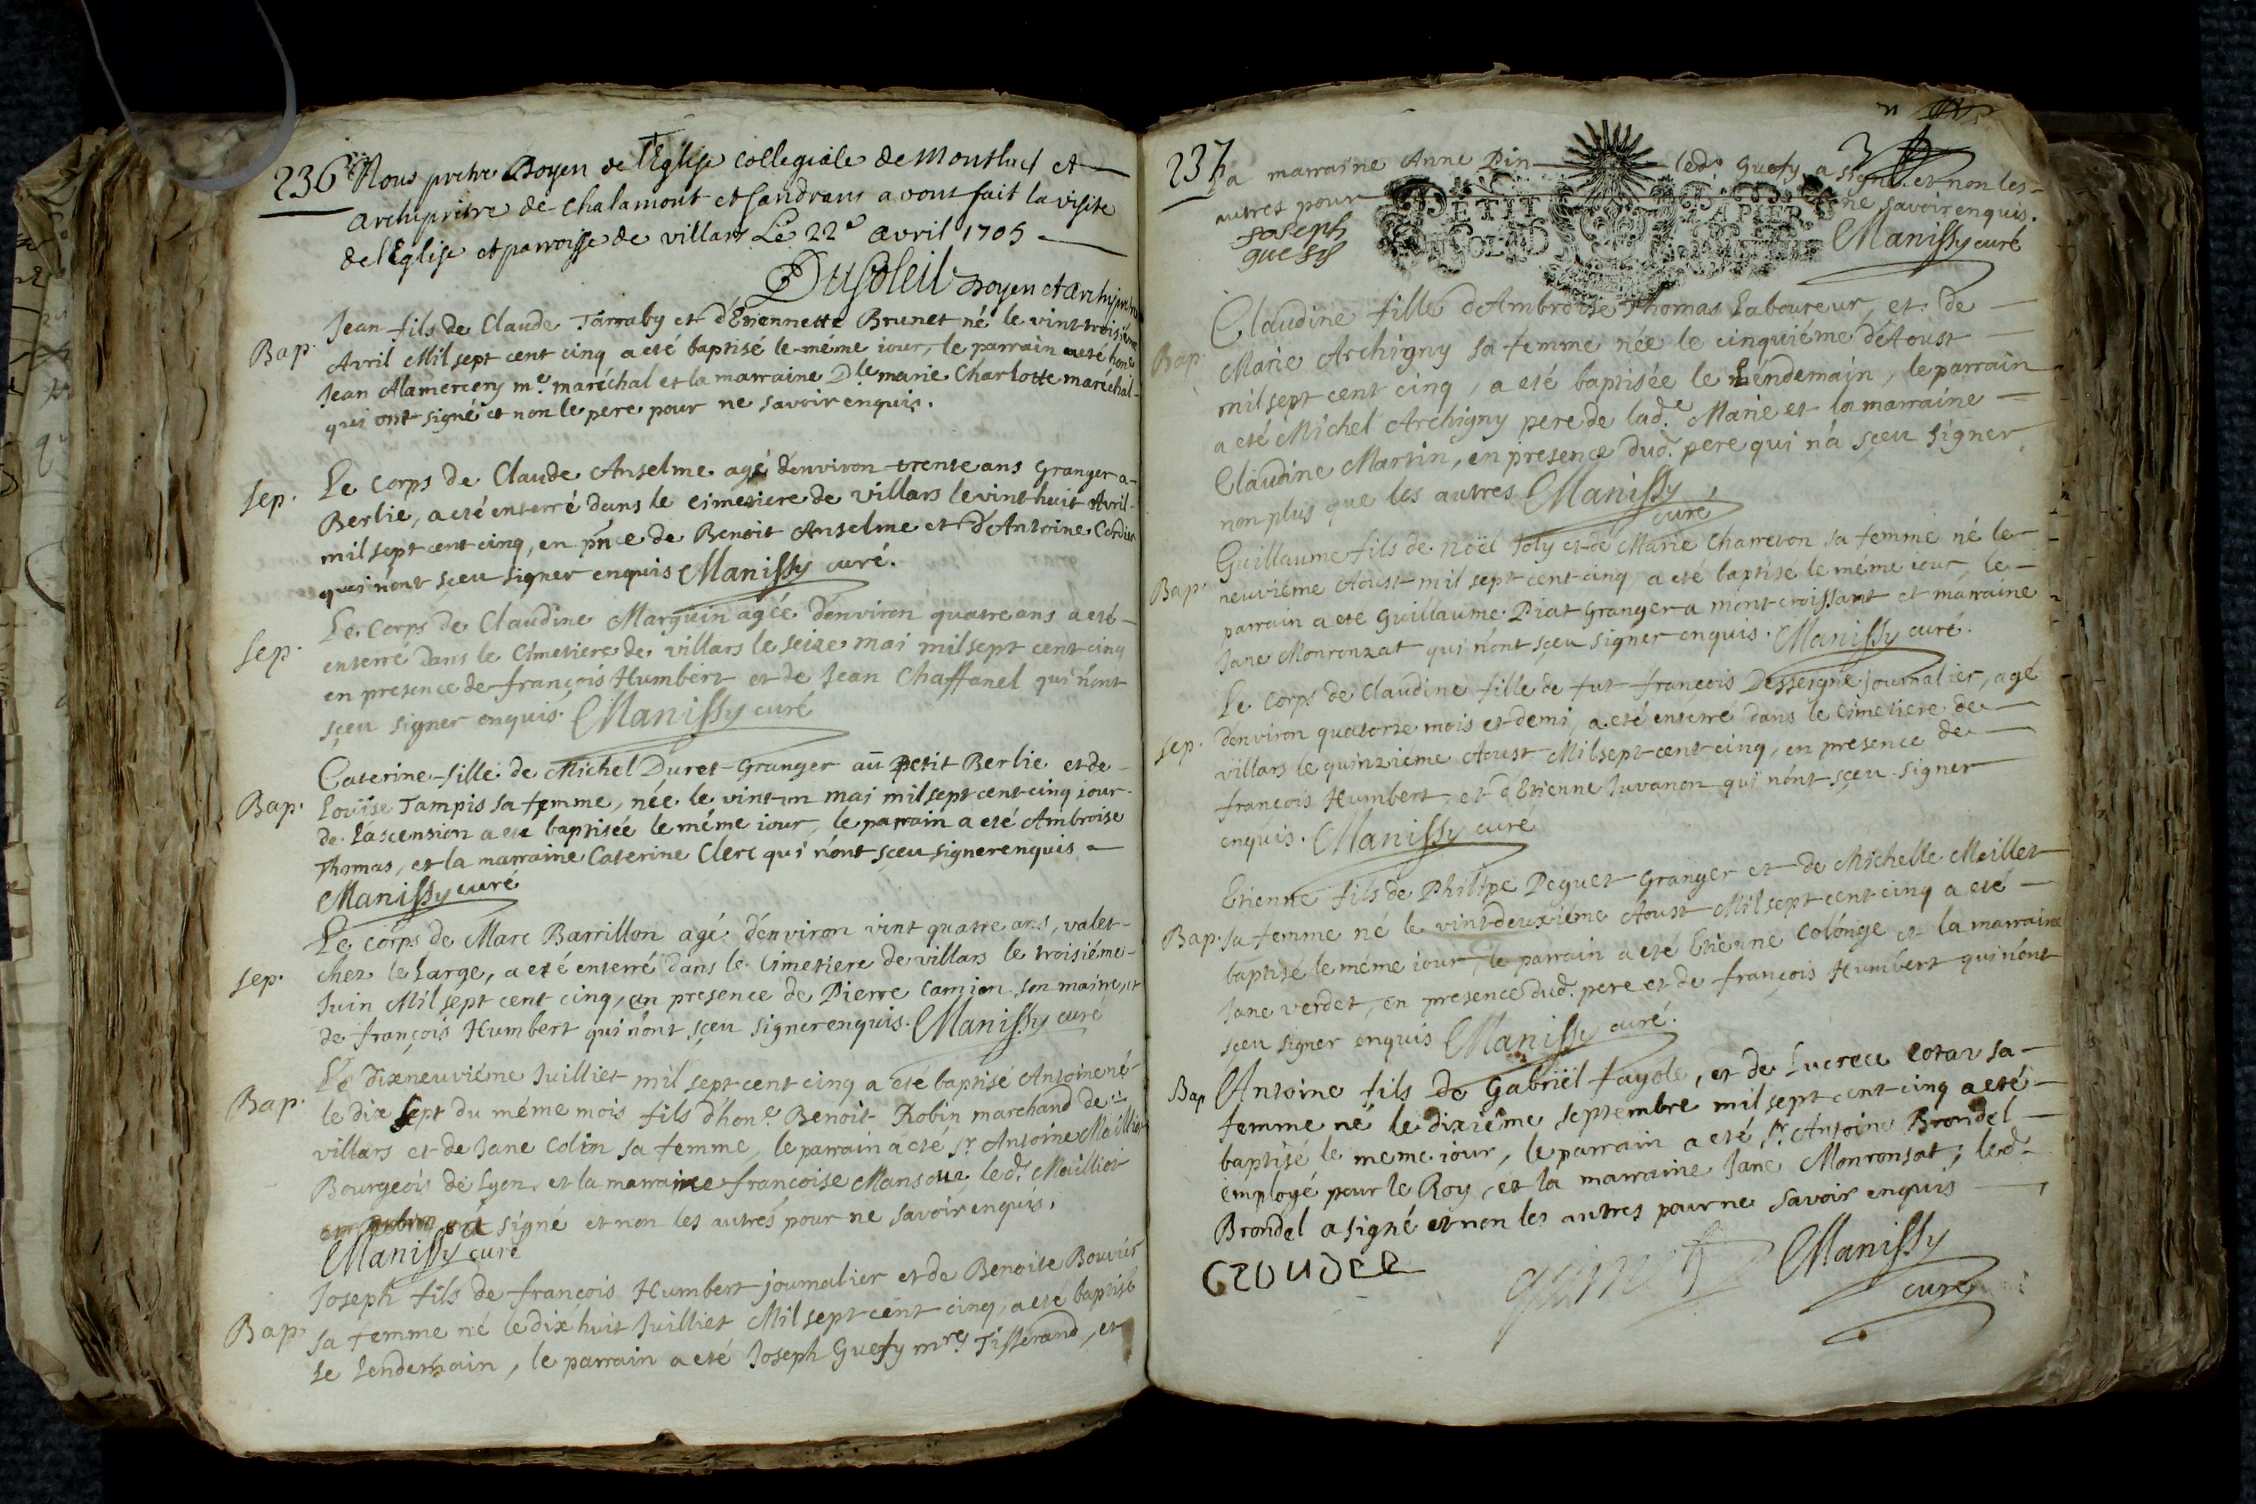 236
Nous pretre Doyen de l'Eglise collegiale de Montluel et
Archipretre de chalamont et Sandrans avons fait la visite
de l'Eglise et parroisse de villars Le 22e avril 1705
DuSoleil Doyen et archipretre
Bap. Jean fils de Claude Tarraby et d'Etiennette Brunet né le vint troisiéme
Avril Mil sept cent cinq a eté baptisé le méme iour, le parrain a eté hon.e
Jean Alamercery m.e maréchal et la marraine D.le marie Charlotte maréchal
qui ont signé et non le pere pour ne savoir enquis.
Sep. Le corps de Claude Anselme agé d'environ trente ans Granger a
Berlie, a eté enterré dans le cimetiere de villars le vint huit Avril
mil sept cent cinq, en pñce de Benoit Anselme et d'Antoine Cordier
qui n'ont sçeu signer enquis Manissy curé.
Sep. Le Corps de Claudine Marguin agée d'environ quatre ans a eté
enterré dans le Cimetiere de villars le seize mai mil sept cent cinq
en presence de françois Humbert et de Jean Chaffanel qui n'ont
sçeu signer enquis. Manissy curé
Bap. Caterine fille de Michel Duret Granger au petit Berlie et de
Louïse Tampis sa femme, née le vint un mai mil sept cent cinq iour
de L'ascension a eté baptisée le méme iour, le parrain a eté Ambroise
Thomas, et la marraine Caterine Clerc qui n'ont sçeu signer enquis
Manissy curé
Sep. Le Corps de Marc Barrillon agé d'environ vint quatre ans, valet
chez le Large, a eté enterré dans le Cimetiere de villars le troisiéme
Juin Mil sept cent cinq, en presence de Pierre Camion son maitre, et
de françois Humbert qui n'ont sçeu signer enquis. Manissy curé
Bap. Le Dixneuviéme Juilliet mil sept cent cinq a eté baptisé Antoine né
le dix sept du méme mois fils d'hon.e Benoit Robin marchand de
villars et de Jane Colin sa femme, le parrain a eté Sr. Antoine Maillier
Bourgeois de Lyon, et la marraine françoise Mansour led.t Mailliot
a signé et non les autres pour ne savoir enquis.
Manissy curé
Bap. Joseph fils de françois Humbert journalier et de Benoite Bouvier
sa femme né le dix huit Juilliet Mil sept cent cinq, a eté baptisé
Le Lendemain, le parrain a eté Joseph Guefy m.re Tisserand, et
237
la marraine Anne Pin led. Guefy a signé et non les
autres pour ne savoir enquis.
Joseph
Manissy curé
PETIT PAPIER
Bap. Claudine fille d'Ambroise Thomas Laboureur, et de
Marie Archigny sa femme née le cinquiéme d'Aoust
mil sept cent cinq, a eté baptisée le Lendemain, le parrain
a eté Michel Archigny pere de lad.e Marie et la marraine
Claudine Martin, en presence dud. pere qui n'a sçeu signer
non plus que les autres Manissy
curé
Bap. Guillaume fils de Noël Joly et de Marie Charreton sa femme né le
neuviéme Aoust mil sept cent cinq a eté baptisé le méme iour, le
parrain a eté Guillaume Piat Granger a mont croissant et marraine
Jane Monronzat qui n'ont sçeu signer enquis. Manissy curé.
Sep. Le Corps de Claudine fille de fut françois Desseigne journalier, agé
d'environ quatorze mois et demi, a eté enterré dans le Cimetiere de
villars le quinziéme Aoust Mil sept cent cinq, en presence de
françois Humbert, et d'Etienne Juvanon qui n'ont sçeu signer
enquis. Manissy curé
Bap. Etienne fils de Philipe Peguet Granger et de Michelle Meillet
sa femme né le vint deuxiéme Aoust Mil sept cent cinq a eté
baptisé le méme iour, le parrain a eté Etienne Colonge et la marraine
Jane verdet, en presence dud. pere et de françois Humbert qui n'ont
sçeu signer enquis Manissy curé.
Bap Antoine fils de Gabriël fayole, et de Lucrece Cotar sa
femme né le dixiéme septembre mil sept cent cinq a eté
baptisé le meme iour, le parrain a eté Sr. Antoine Brondel
employé pour le Roy, et la marraine Jane Monronsat, led.
Brondel a signé et non les autres pour ne savoir enquis
Manissy
curé